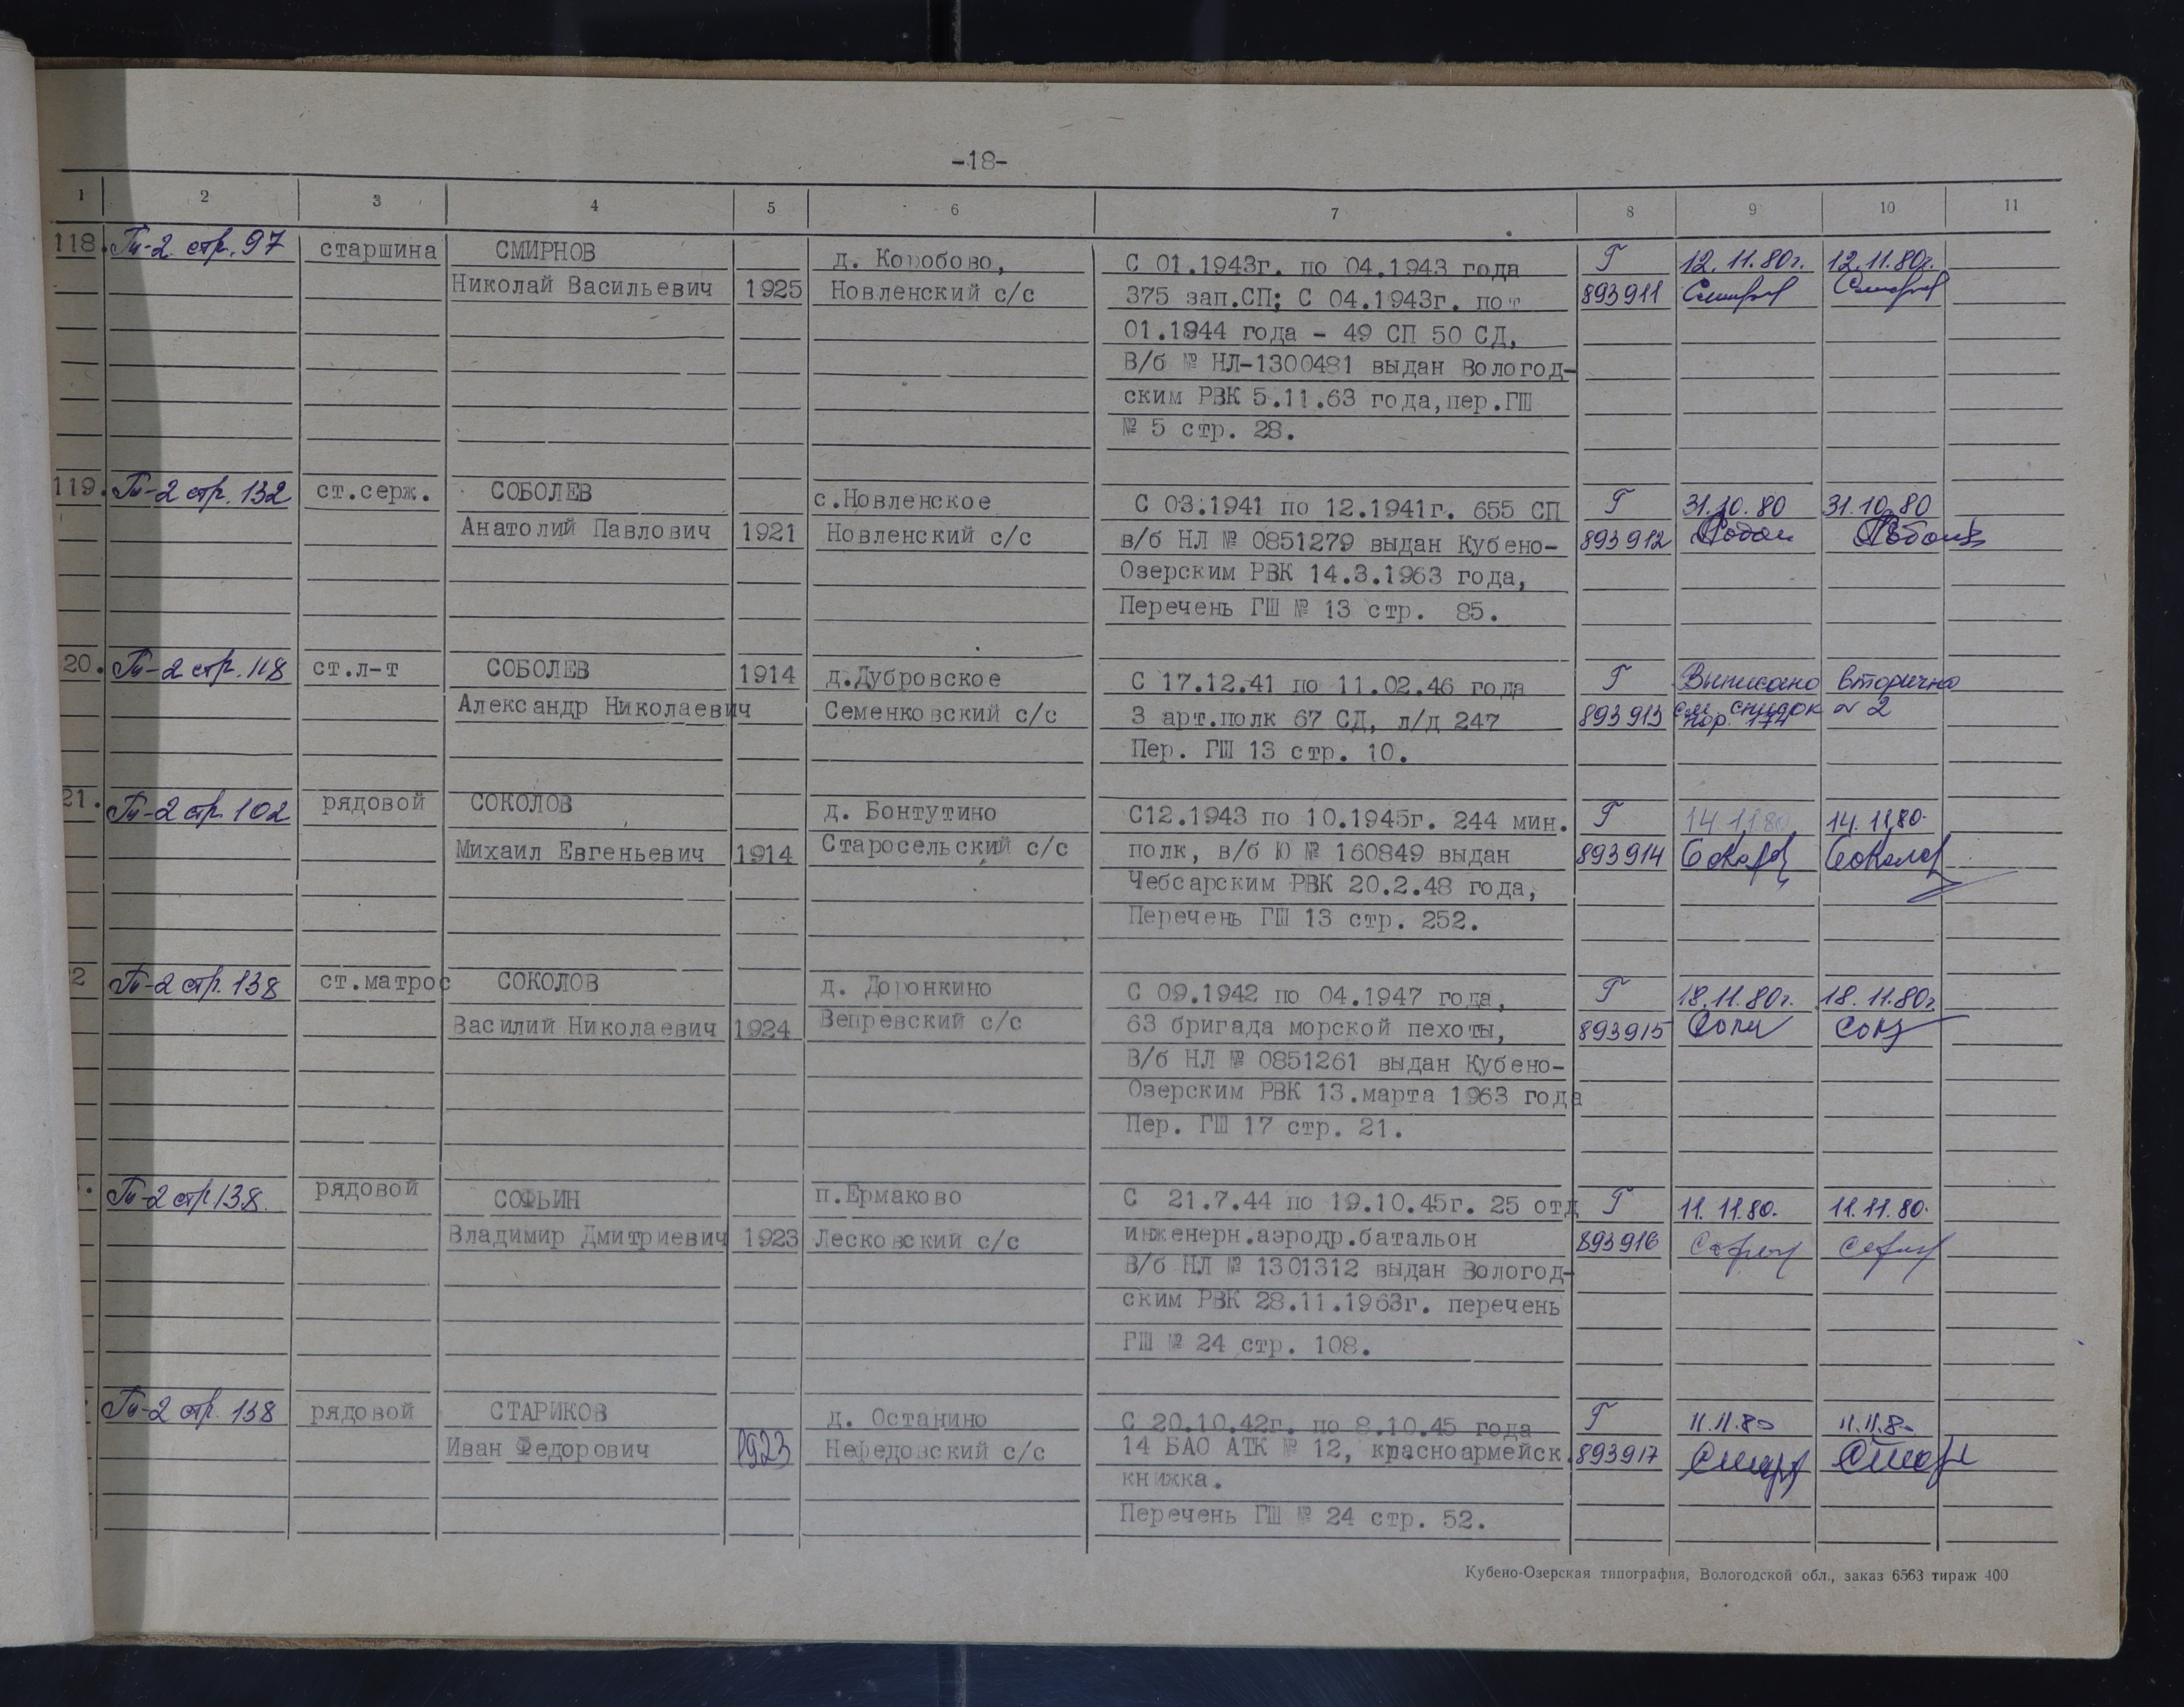 -18-
1 2 3 4 5 6 7 8 9 10 11
118. Тп-2 стр. 97 старшина СМИРНОВ д. Коробово, С 01.1943г. по 04.1943 года Г 12.11.80г. 12.11.80г.
Николай Васильевич 1925 Новленский с/с 375 зап.СП; С 04.1943г. по 893911
01.1944 года - 49 СП 50 СД,
В/б № НЛ-1300481 выдан Вологод-
ским РВК 5.11.63 года, пер.ГШ
№ 5 стр. 28.
119. Тп-2 стр. 132 ст.серж. СОБОЛЕВ с.Новленское С 03.1941 по 12.1941г. 655 СП Г 31.10.80 31.10.80
Анатолий Павлович 1921 Новленский с/с в/б НЛ № 0851279 выдан Кубено- 893912
Озерским РВК 14.3.1963 года,
Перечень ГШ № 13 стр. 85.
20. Тп-2 стр. 118 ст.л-т СОБОЛЕВ 1914 д.Дубровское С 17.12.41 по 11.02.46 года Г Выписано вторично
Александр Николаевич Семенковский с/с 3 арт.полк 67 СД, л/д 247 893913 см. список № 2
пор. 174
Пер. ГШ 13 стр. 10.
21. Тп-2 стр. 102 рядовой СОКОЛОВ д. Бонтутино С12.1943 по 10.1945г. 244 мин. Г 14.11.80 14.11.80.
Михаил Евгеньевич 1914 Старосельский с/с полк, в/б Ю № 160849 выдан 893914
Чебсарским РВК 20.2.48 года,
Перечень ГШ 13 стр. 252.
2 Тп-2 стр. 138 ст.матрос СОКОЛОВ д. Доронкино С 09.1942 по 04.1947 года, Г 18.11.80г. 18.11.80г.
Василий Николаевич 1924 Вепревский с/с 63 бригада морской пехоты, 893915
В/б НЛ № 0851261 выдан Кубено-
Озерским РВК 13.марта 1963 года
Пер. ГШ 17 стр. 21.
. Тп-2 стр 138. рядовой СОФЬИН п.Ермаково С 21.7.44 по 19.10.45г. 25 отд Г 11.11.80. 11.11.80.
Владимир Дмитриевич 1923 Лесковский с/с инженерн.аэродр.батальон 893916
В/б НЛ № 1301312 выдан Вологод-
ским РВК 28.11.1963г. перечень
ГШ № 24 стр. 108.
Тп-2 стр. 138 рядовой СТАРИКОВ д. Останино С 20.10.42г. по 8.10.45 года Г 11.11.80 11.11.80
Иван Федорович 1923 Нефедовский с/с 14 БАО АТК № 12, красноармейск. 893917
книжка.
Перечень ГШ № 24 стр. 52.
Кубено-Озерская типография, Вологодской обл., заказ 6563 тираж 400